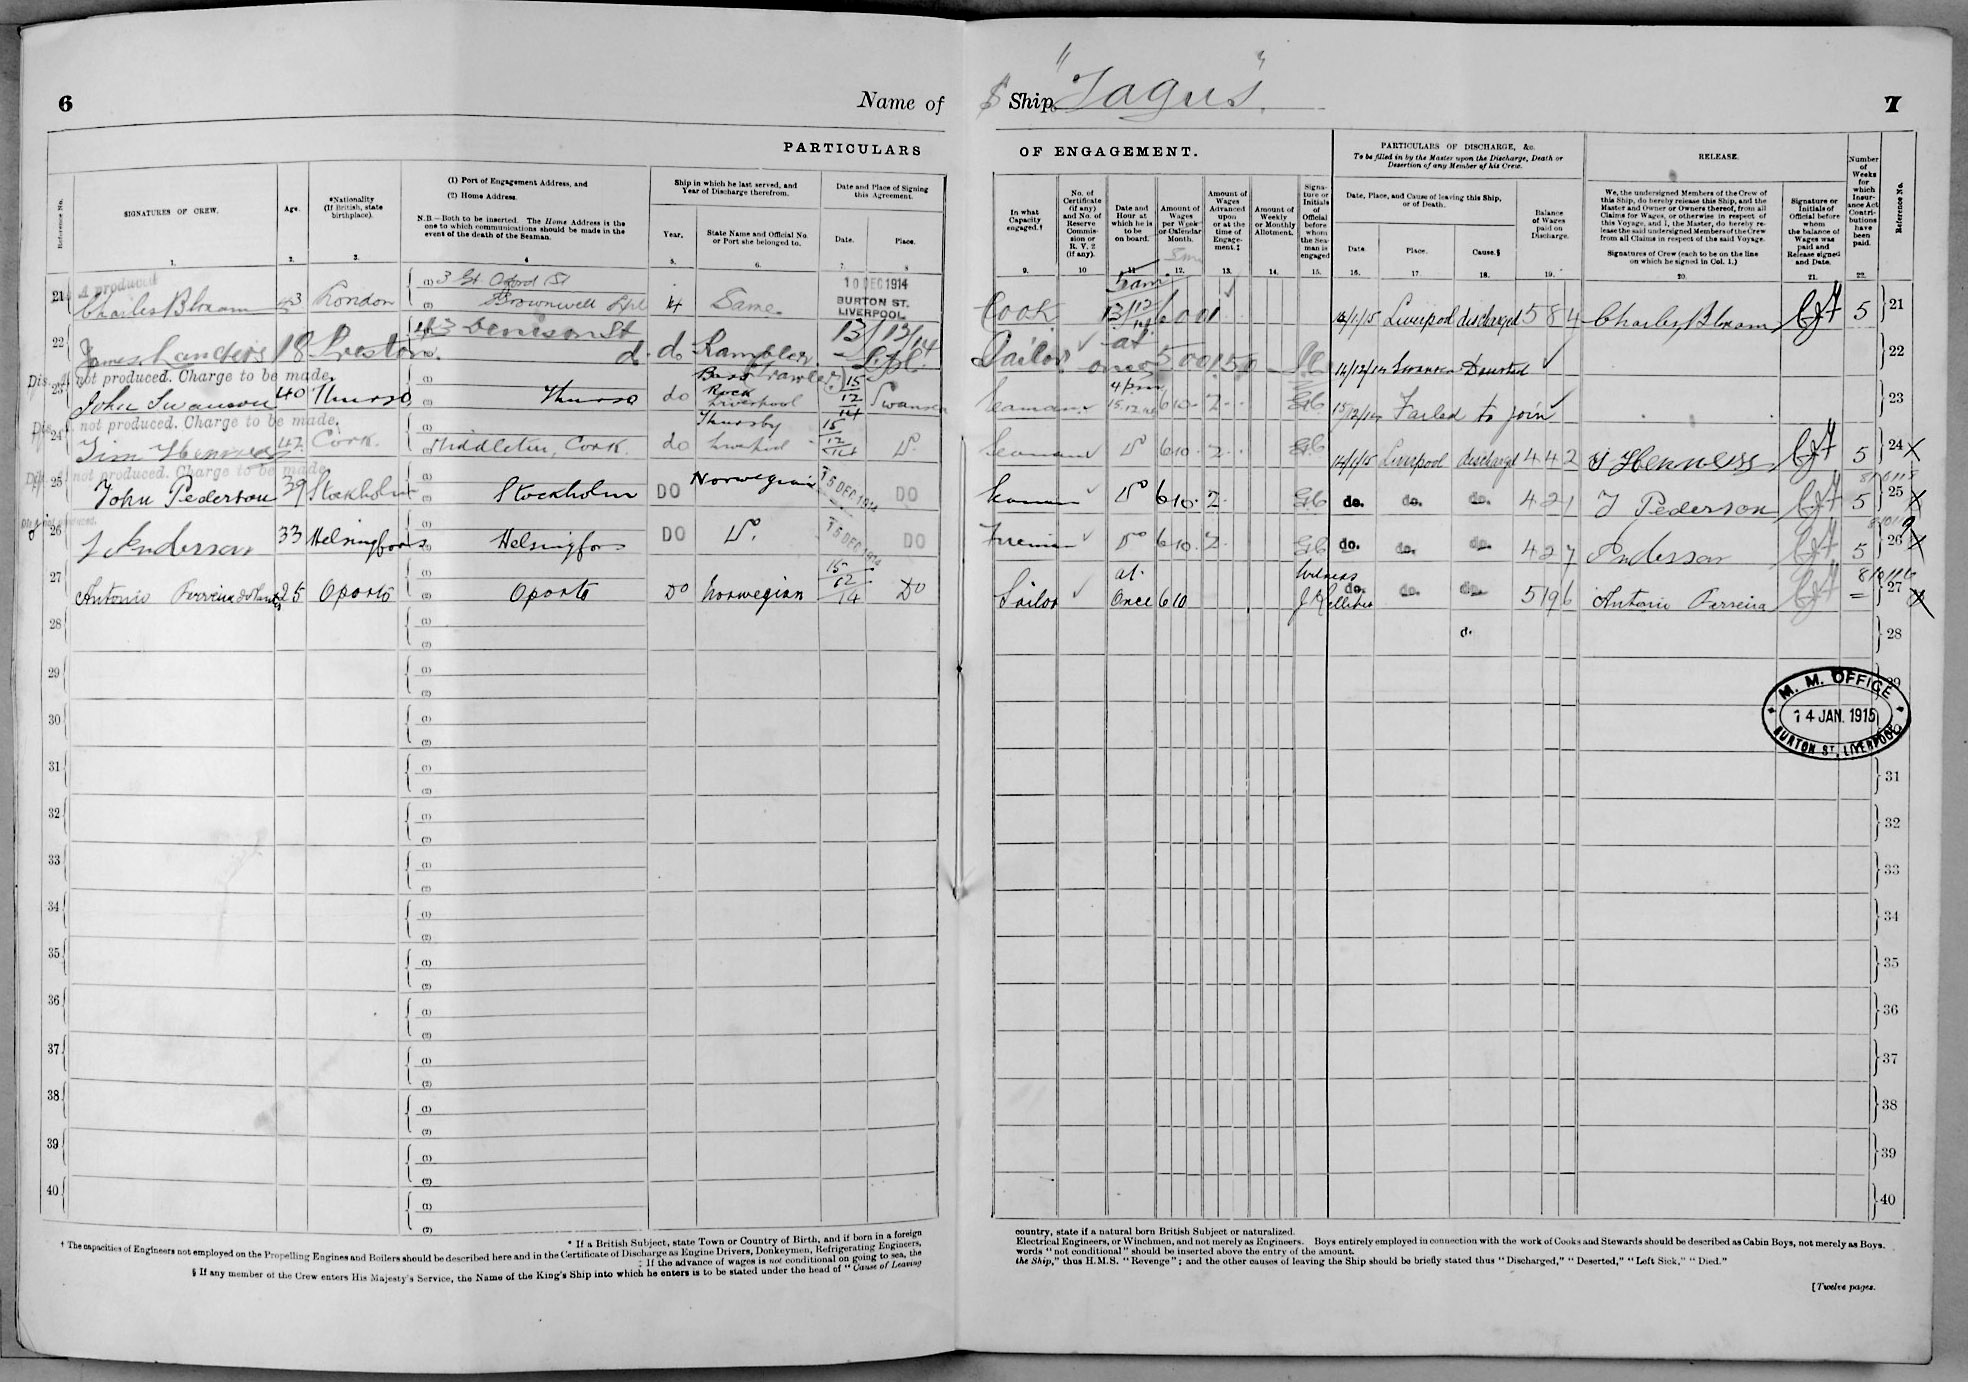 6
Name of
S Ship "Tagus"
7
PARTICULARS
OF ENGAGEMENT.
Reference No.
SIGNATURES OF CREW.
1.
Age.
2.
*Nationality
(If British, state
birthplace).
3.
(1) Port of Engagement Address, and
(2) Home Address.
N.B.—Both to be inserted. The Home Address is the
one to which communications should be made in the
event of the death of the Seaman.
4
Ship in which he last served, and
Year of Discharge therefrom.
Year.
5.
State Name and Official No.
or Port she belonged to.
6.
Date and Place of Signing
this Agreement.
Date.
7.
Place.
8
In what
Capacity
engaged.†
9.
No. of
Certificate
(if any)
and No. of
Reserve
Commis-
sion or
R. V. 2
(if any).
10
Date and
Hour at
which he is
to be
on board.
11
Amount of
Wages
per Week
or Calendar
Month.
12.
Amount of
Wages
Advanced
upon
or at the
time of
Engage-
ment.‡
13.
Amount of
Weekly
or Monthly
Allotment.
14.
Signa-
ture or
Initials
of
Official
before
whom
the Sea-
man is
engaged
15.
PARTICULARS OF DISCHARGE, &c.
To be filled in by the Master upon the Discharge, Death or
Desertion of any Member of his Crew.
Date, Place, and Cause of leaving this Ship,
or of Death.
Date.
16.
Place.
17.
Cause.§
18.
Balance
of Wages
paid on
Discharge.
19.
RELEASE.
We, the undersigned Members of the Crew of
this Ship, do hereby release this Ship, and the
Master and Owner or Owners thereof, from all
Claims for Wages, or otherwise in respect of
this Voyage, and I, the Master, do hereby re-
lease the said undersigned Members of the Crew
from all Claims in respect of the said Voyage.
Signatures of Crew (each to be on the line
on which he signed in Col. 1.)
20.
Signature or
Initials of
Official before
whom
the balance of
Wages was
paid and
Release signed
and Date.
21.
Number
of
Weeks
for
which
Insur-
ance Act
Contri-
butions
have
been
paid.
22.
Reference No.
A produced
21 Charles Bloxam London (1) 3 Gt. Oxford St Same. 10 DEC 1914
BURTON ST.
LIVERPOOL.
Cook 5am 13/12/14 14/1/15 Liverpool discharged 5 8 4 Charles Bloxam 5 21
22 James Landers 18 Preston. 43 Denison St do Rambler.
Sailor at once 14/12/14 Swansea Deserted 22
Dis. A not produced. Charge to be made.
23 John Swanson 40 Thurso (1) (2) Thurso do Rock Liverpool 15/12/14 Swansea
Seaman 4 pm 15.12.14 6 10 2 15/12/14 Failed to join 23
Dis. A not produced. Charge to be made.
24 Tim Hennessy 42 Cork. (1) (2) Middleton, Cork. do Thursby Liverpool 15/12/14 Do.
Seaman Do 6 10 2 14/1/15 Liverpool discharged 4 4 2 T Hennessy 5 24 X
Dis. A not produced. Charge to be made.
25 John Pederson 39 Stockholm Stockholm DO Norwegian 15 DEC 1914 DO
Seaman Do 6 10 2 do. do. do. 4 2 1 J Pederson 5 25 X
26 J Anderson 33 Helsingfors Helsingfors DO Do. 15 DEC 1914 DO
Fireman Do 6 10 2 do. do. do. 4 2 7 Anderson 5 26 X
27 Antonio Ferreira 25 Oporto Oporto Do Norwegian 15/12/14 Do
Sailor at Once 6 10 Witness do. do. do. 5 19 6 Antonio Ferreira = 27 X
28 (1) (2) d. 28
29 (1) (2) 29
M. M. OFFICE
14 JAN. 1915
BURTON ST. LIVERPOOL
30 (1) (2) 30
31 (1) (2) 31
32 (1) (2) 32
33 (1) (2) 33
34 (1) (2) 34
35 (1) (2) 35
36 (1) (2) 36
37 (1) (2) 37
38 (1) (2) 38
39 (1) (2) 39
40 (1) (2) 40
* If a British Subject, state Town or Country of Birth, and if born in a foreign
† The capacities of Engineers not employed on the Propelling Engines and Boilers should be described here and in the Certificate of Discharge as Engine Drivers, Donkeymen, Refrigerating Engineers,
‡ If the advance of wages is not conditional on going to sea, the
§ If any member of the Crew enters His Majesty's Service, the Name of the King's Ship into which he enters is to be stated under the head of "Cause of Leaving
country, state if a natural born British Subject or naturalized.
Electrical Engineers, or Winchmen, and not merely as Engineers. Boys entirely employed in connection with the work of Cooks and Stewards should be described as Cabin Boys, not merely as Boys.
words "not conditional" should be inserted above the entry of the amount.
the Ship," thus H.M.S. "Revenge"; and the other causes of leaving the Ship should be briefly stated thus "Discharged," "Deserted," "Left Sick," "Died."
[Twelve pages.